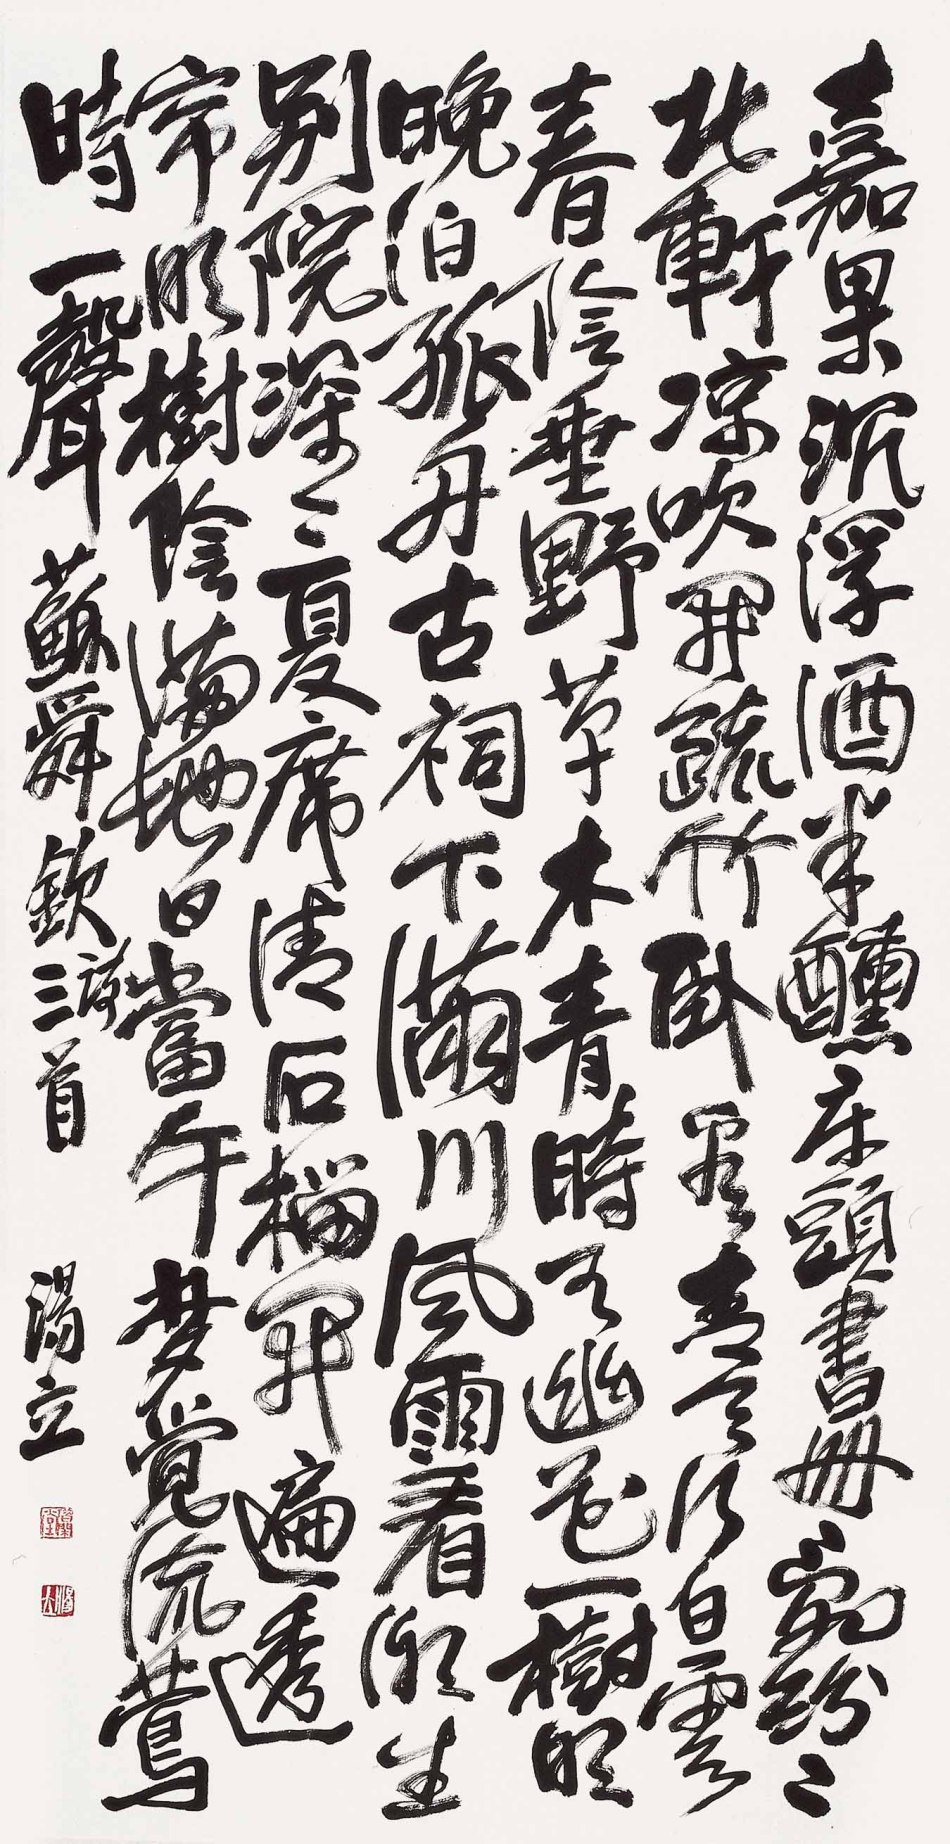 嘉果沉浮酒半醺床頭書冊亂紛〻
北軒凉吹開疏竹臥看青天行白雲
春陰垂野草木青時有幽花一樹明
晚泊孤舟古祠下滿川風雨看潮生
別院深〻夏席清石榴開遍透
帘明樹陰滿地日當午梦覺流鶯
時一聲 蘇舜欽詩三首 湯立